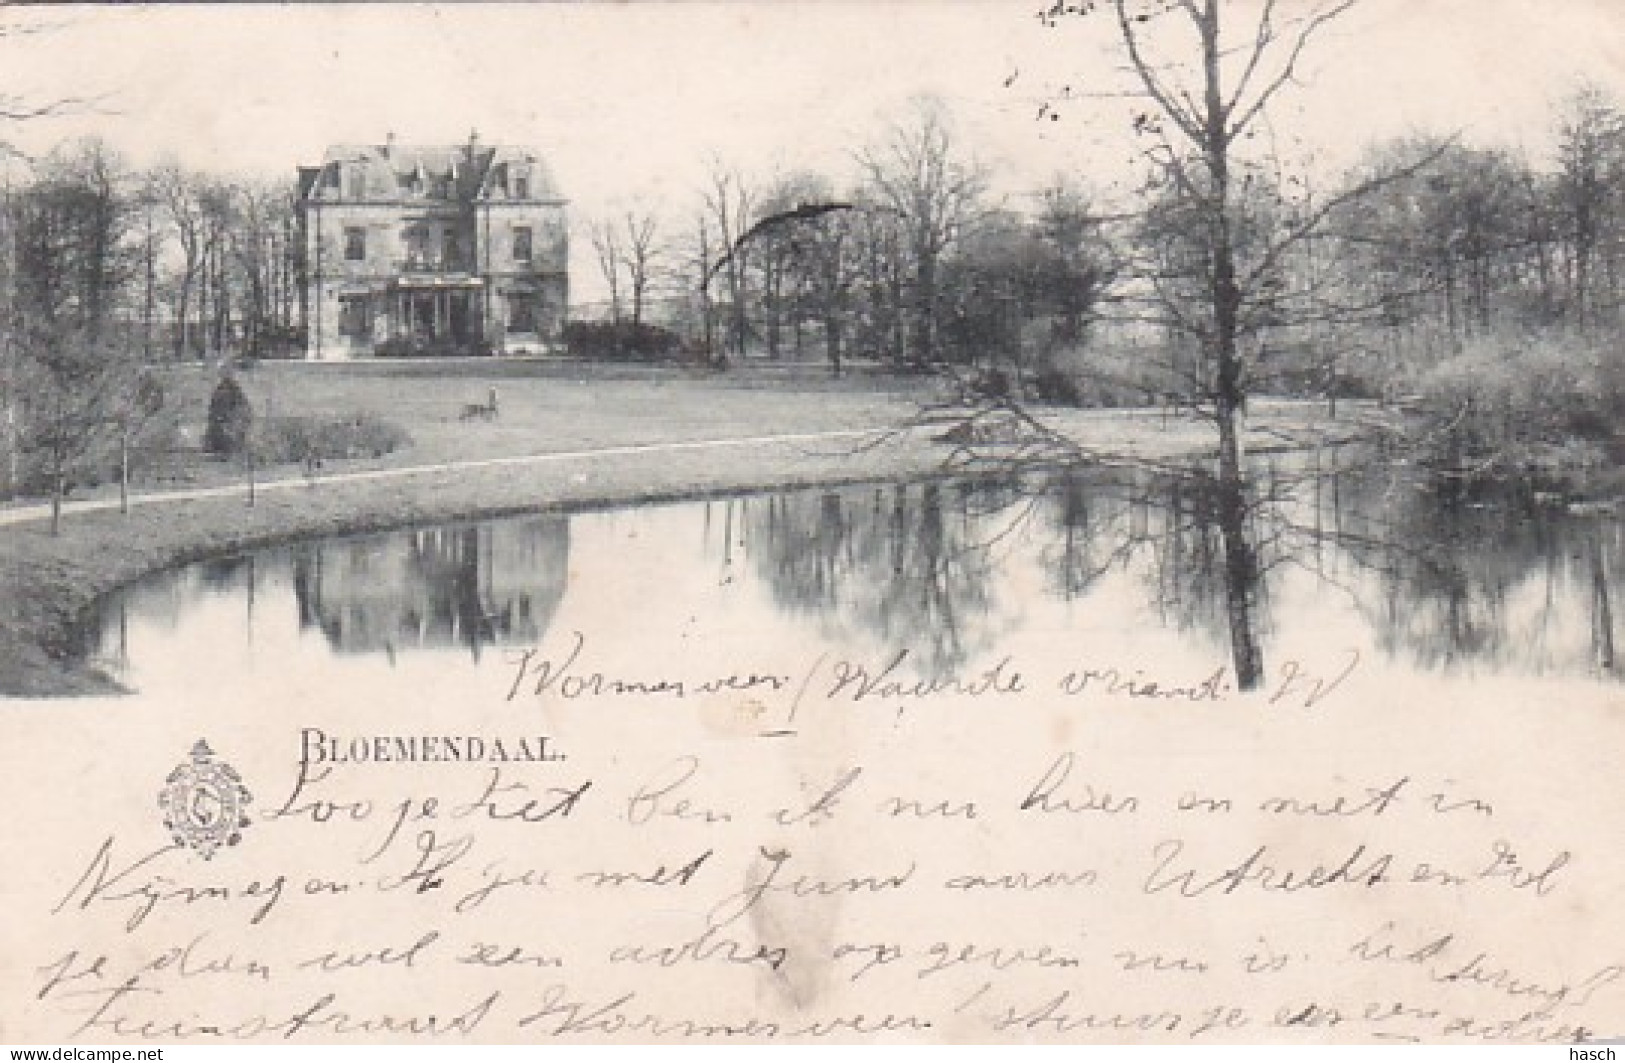 Wormerveer / Waarde vriend. W
BLOEMENDAAL.
Zoo je ziet ben ik nu hier en niet in
Nijmegen. Ik ga met Juni naar Utrecht en zal
je dan wel een adres opgeven nu is het
Tuinstraat Wormerveer stuur je eens een
terug?
adres
hasch
© delcampe.net